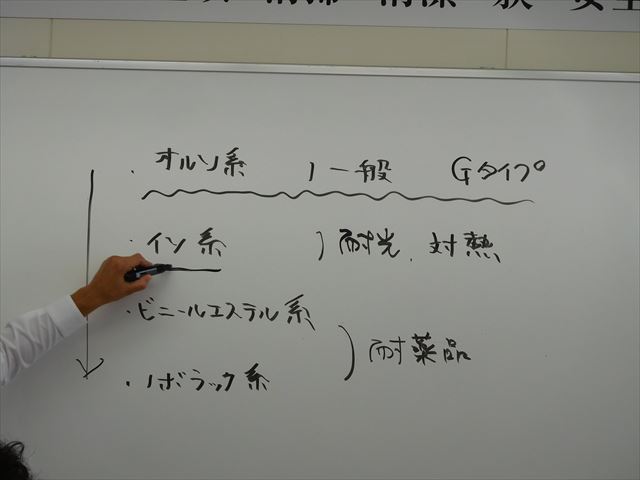 清掃 清潔 躾 安全
・オルソ系 ) 一般 Gタイプ
・イソ系 ) 耐光、対熱
・ビニールエステル系
) 耐薬品
・ノボラック系